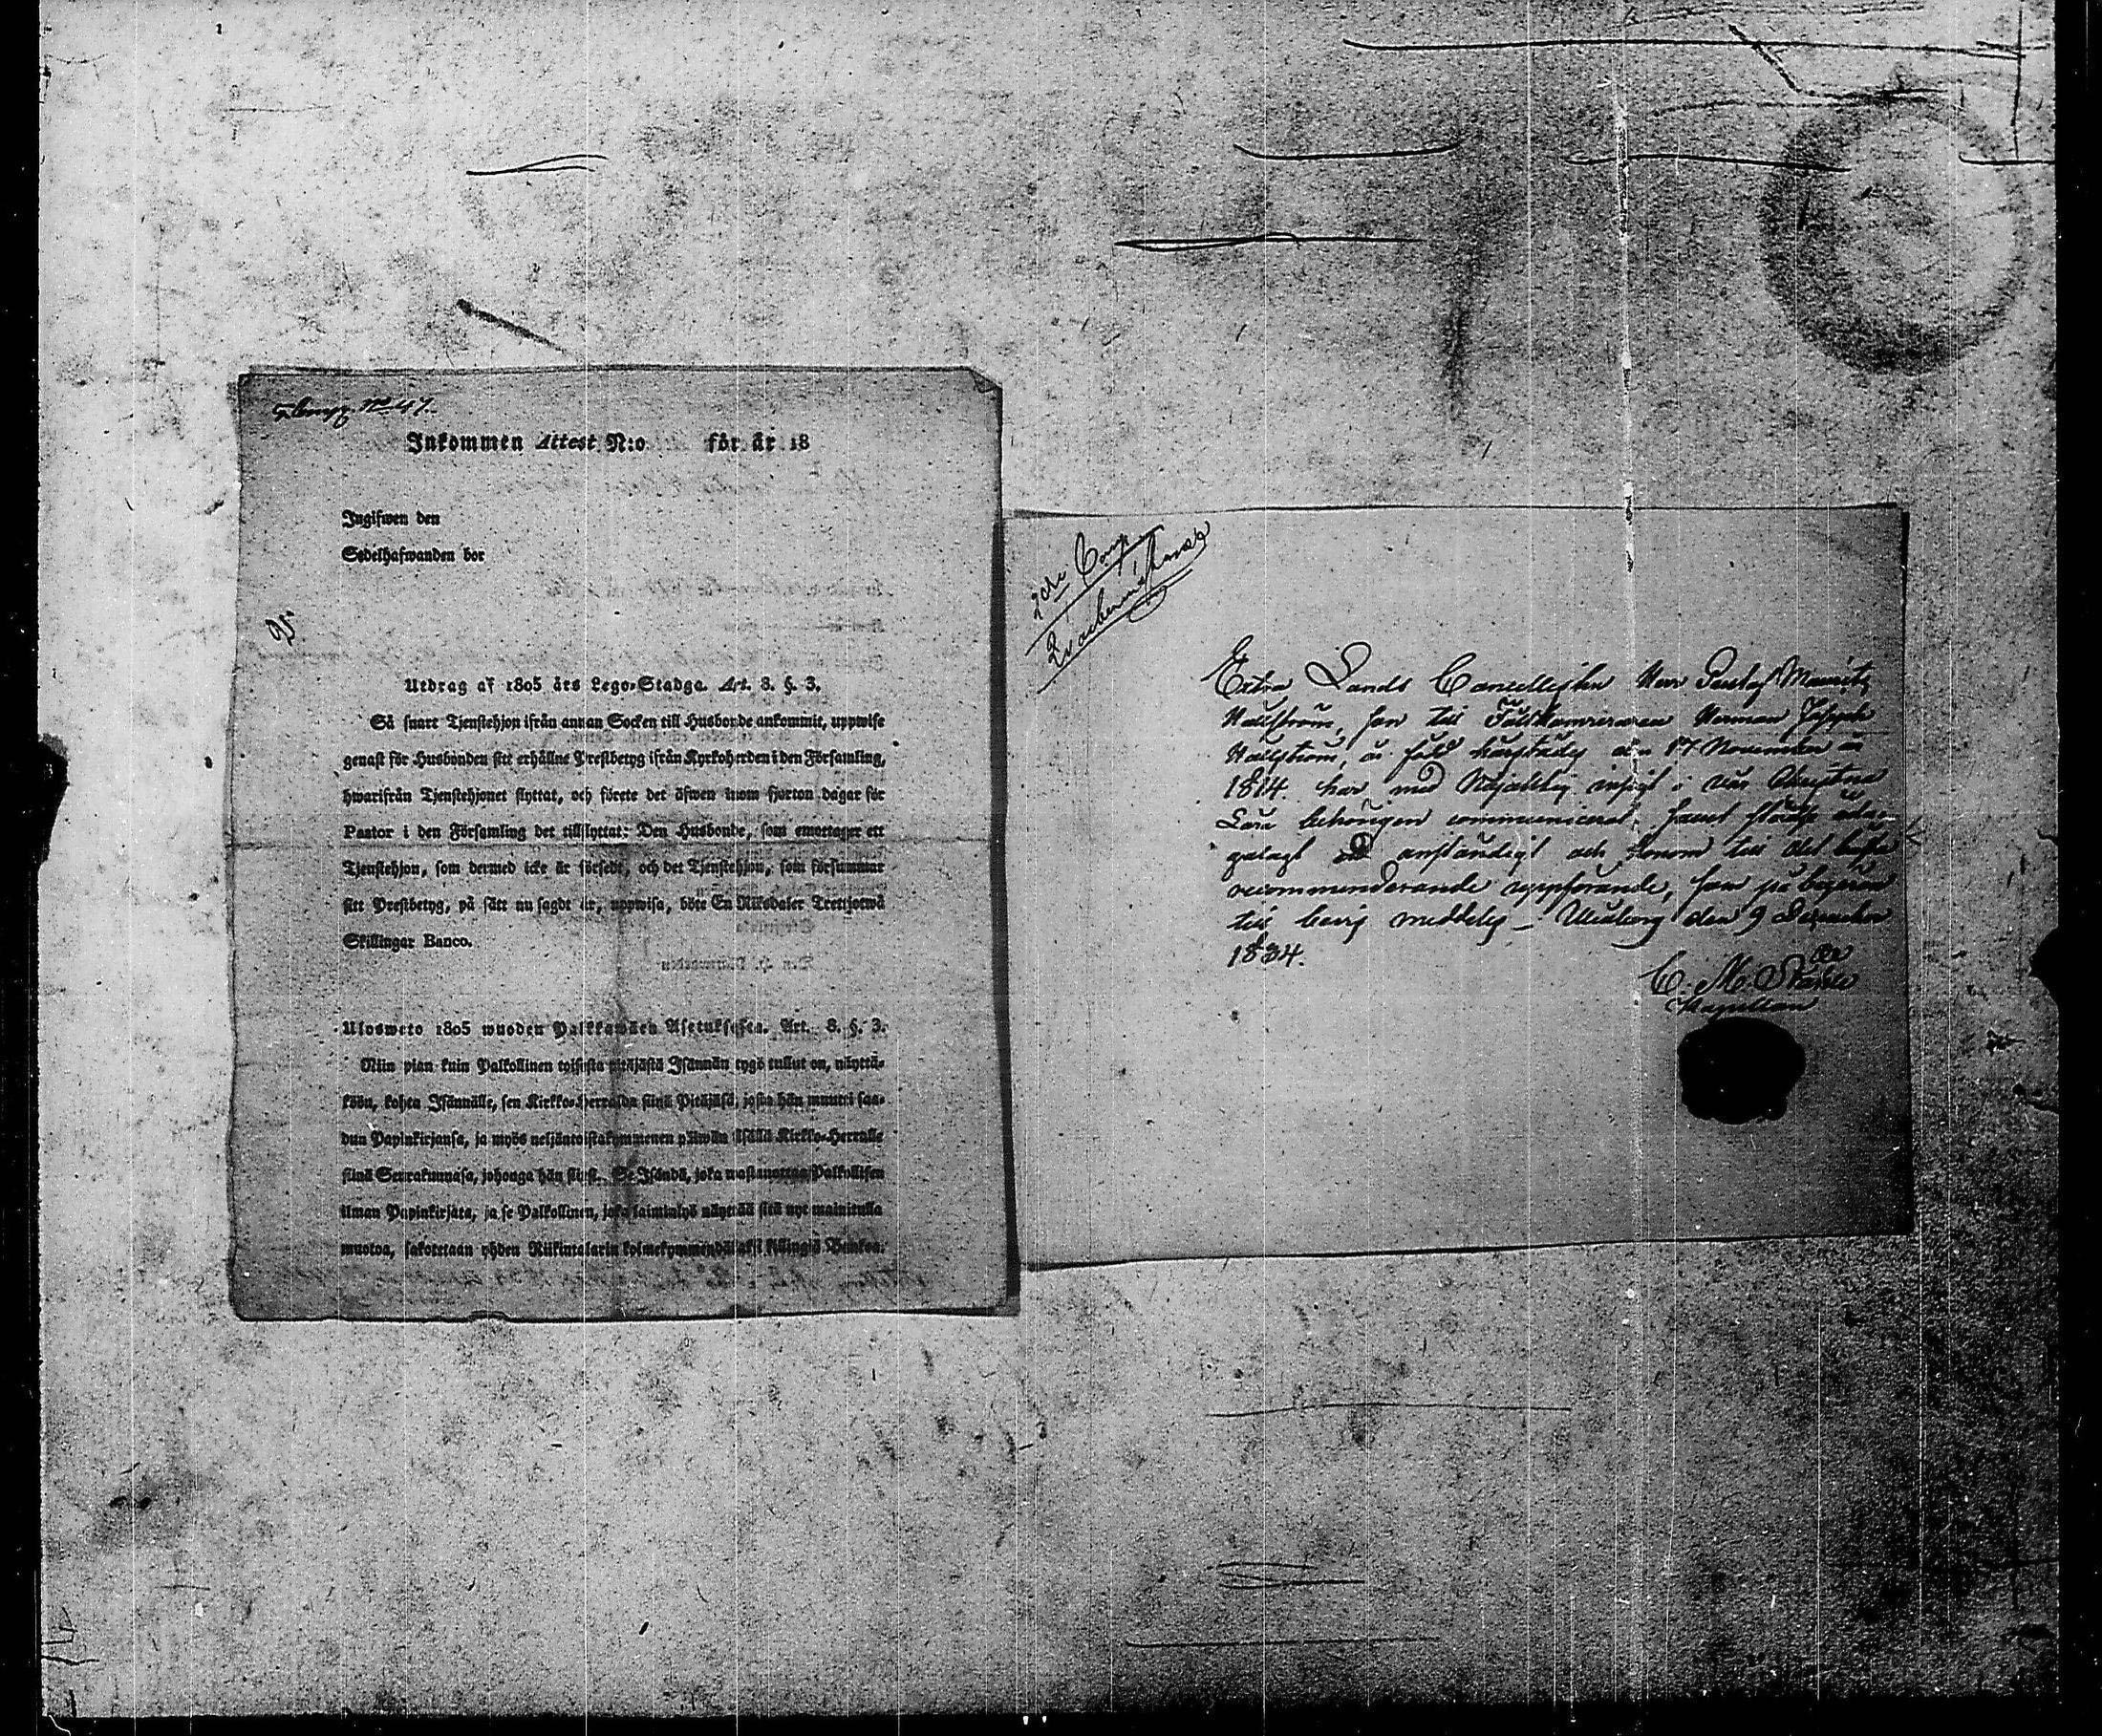 No 47.
Inkommen Attest N:o för år 18
Ingifwen den
Sedelhafwanden bor
95
Utdrag af 1805 års Lego-Stadga. Art. 8. §. 3.
Så snart Tjenstehjon ifrån annan Socken till Husbonde ankommit, uppwise
genast för Husbonden sitt erhållne Prestbetyg ifrån Kyrkoherden i den Församling,
hwarifrån Tjenstehjonet flyttat, och förete det äfwen inom fjorton dagar för
Pastor i den Församling det tillflyttat: Den Husbonde, som emottager ett
Tjenstehjon, som dermed icke är försedt, och det Tjenstehjon, som försummar
sitt Prestbetyg, på sätt nu sagdt är, uppwisa, böte En Riksdaler Trettjotwå
Skillingar Banco.
Ulosweto 1805 wuoden Palkkawäen Asetuksesta. Art. 8. §. 3.
Niin pian kuin Palkollinen toisesta pitäjästä Isännän tygö tullut on, näyttä-
köön, kohta Isännälle, sen Kirkko-Herralda siinä Pitäjäsä, josta hän muutti saa-
dun Papinkirjansa, ja myös neljäntoistakymmenen päiwän sisällä Kirkko-Herralle
siinä Seurakunnasa, johonga hän siirsi. Se Isändä, joka wastanottaa Palkollisen
ilman Papinkirjata, ja se Palkollinen, joka laiminlyö näyttää sitä nyt mainitulla
muotoa, sakotetaan yhden Riikintalarin kolmekymmendäkaksi killingiä Bankoa.
2dre Comp
Extra Lands Cancellisten Herr Gustaf Mauritz
Hallström, son till FältKamreraren Herman Joseph
Hallström, är född härstädes den 17 November år
1814. har med insigt i vår Christna
Lära behörigen communicerat. samt städse ada-
galagt ett anständigt och honom till det bästa
recommenderande uppförande, som på begäran
till bevis meddeles _ Uleåborg den 9 December
1834.
C. M. Ståhle
Kapellan